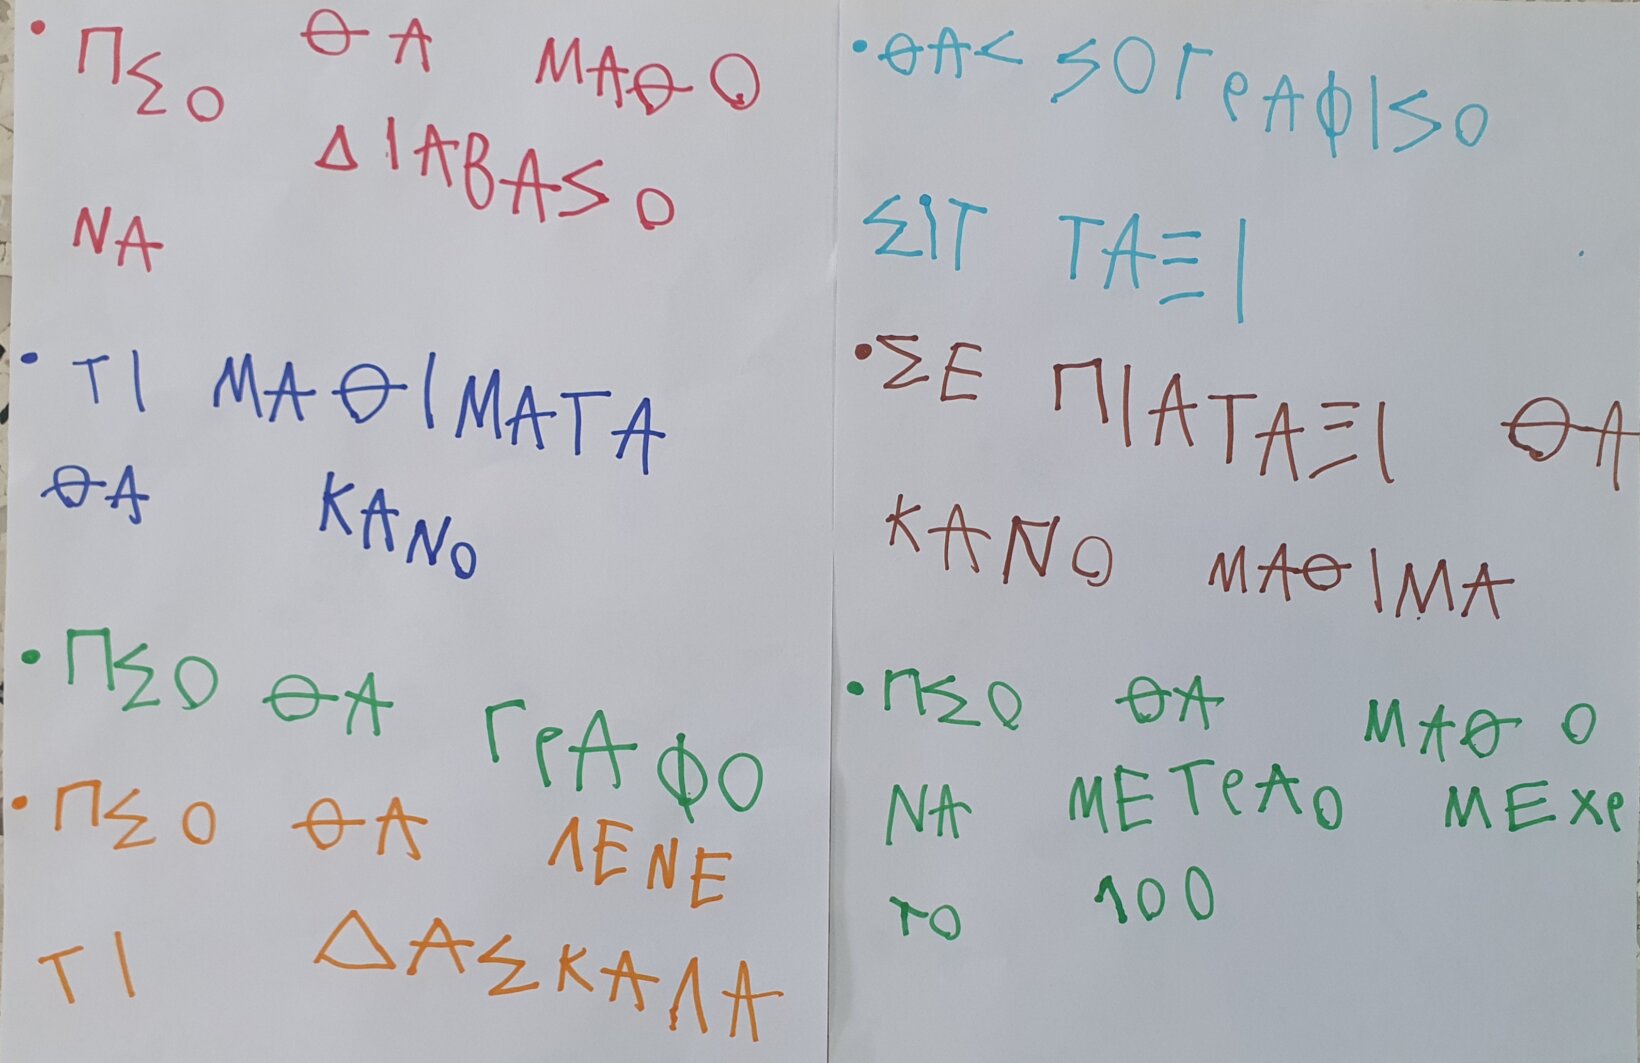 • ΠΣΟ ΘΑ ΜΑΘΟ
ΝΑ ΔΙΑΒΑSΟ
• ΤΙ ΜΑΘΙΜΑΤΑ
ΘΑ ΚΑΝΟ
• ΠΣΟ ΘΑ ΓΡΑΦΟ
• ΠΣΟ ΘΑ ΛΕΝΕ
ΤΙ ΔΑΣΚΑΛΑ
• ΘΑ < SΟΓΡΑΦΙSΟ
ΣΙΤ ΤΑΞΙ
• ΣΕ ΠΙΑΤΑΞΙ ΘΑ
ΚΑΝΟ ΜΑΘΙΜΑ
• ΠΣΟ ΘΑ ΜΑΘΟ
ΝΑ ΜΕΤΡΑΟ ΜΕΧΡ
ΤΟ 100